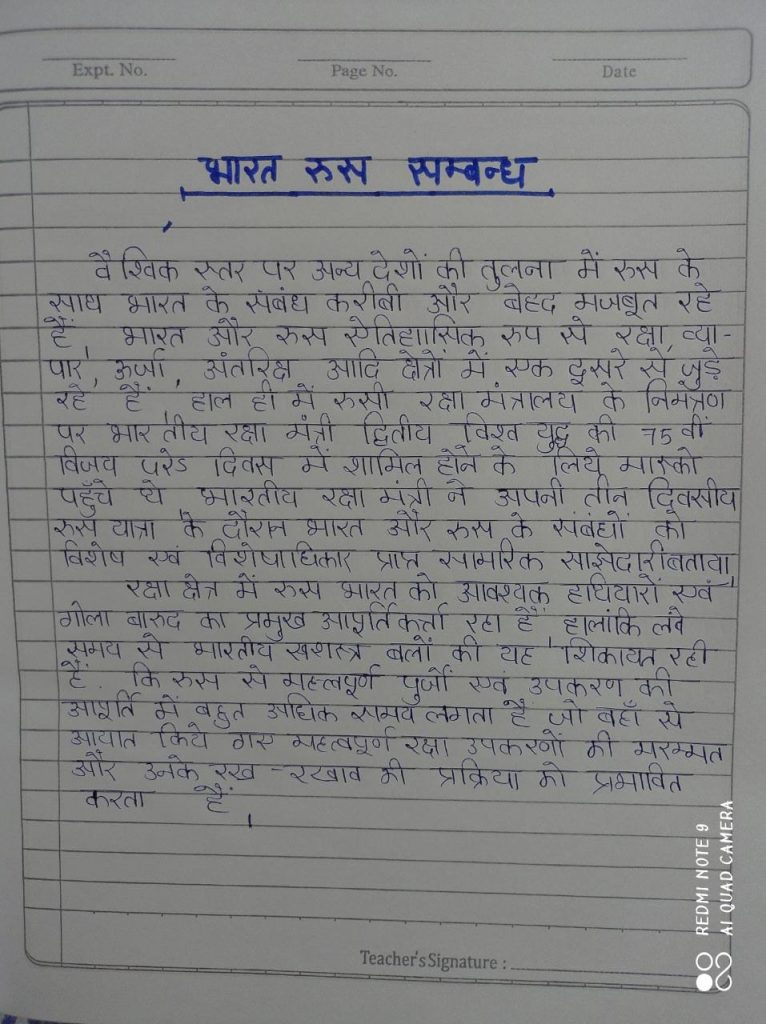 Expt. No.
Page No.
Date
भारत रुस सम्बन्ध
वैश्विक स्तर पर अन्य देशों की तुलना में रुस के
साथ भारत के संबंध करीबी और बेहद मजबूत रहे
हैं, भारत और रुस ऐतिहासिक रुप से रक्षा, व्या-
पार, ऊर्जा, अंतरिक्ष आदि क्षेत्रों में एक दूसरे से जुड़े
रहे हैं, हाल ही में रुसी रक्षा मंत्रालय के निमंत्रण
पर भारतीय रक्षा मंत्री द्वितीय विश्व युद्ध की 75वीं
विजय परेड दिवस में शामिल होने के लिये मास्को
पहुँचे थे, भारतीय रक्षा मंत्री ने अपनी तीन दिवसीय
रुस यात्रा के दौरान भारत और रुस के संबंधों को
विशेष एवं विशेषाधिकार प्राप्त सामरिक साझेदारी बताया,
रक्षा क्षेत्र में रुस भारत को आवश्यक हथियारों एवं
गोला बारुद का प्रमुख आपूर्तिकर्त्ता रहा हैं, हालांकि लंबे
समय से भारतीय सशस्त्र बलों की यह शिकायत रही
हैं. कि रुस से महत्वपूर्ण पुर्जों एवं उपकरण की
आपूर्ति में बहुत अधिक समय लगता हैं जो वहाँ से
आयात किये गए महत्वपूर्ण रक्षा उपकरणों की मरम्मत
और उनके रख-रखाव की प्रक्रिया को प्रभावित
करता हैं,
Teacher's Signature :
REDMI NOTE 9
AI QUAD CAMERA